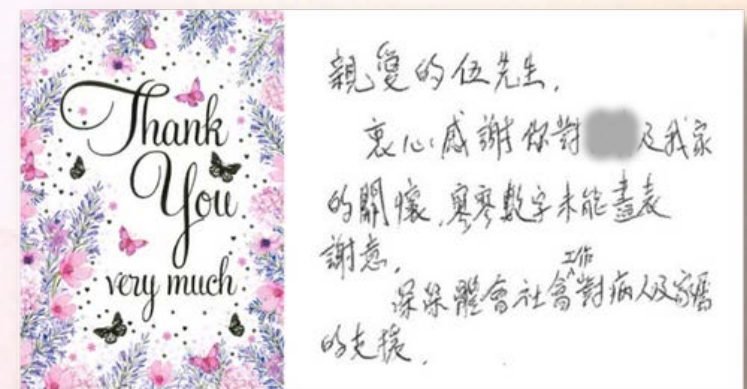 Thank
You
very much
親愛的伍先生,
衷心感謝你對 及我家
的關懷,寥寥數字未能盡表
謝意,
深深體會社會工作對病人及家屬
的支援.